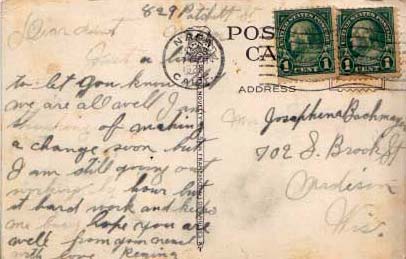 829 Patchett St
Dear Aunt
Just a line
to let you know
we are all well I am
thinking of making
a change soon but
I am still going out
working by hour but
it hard work and keeps
me busy hope you are
well from your niece
with love Regina
NAPA
CAL
POST
CA
ADDRESS
UNITED STATES POSTAGE
1 CENT 1
UNITED STATES POSTAGE
1 CENT 1
Josephena Bachmay
702 S. Brook St
Madison
Wis.